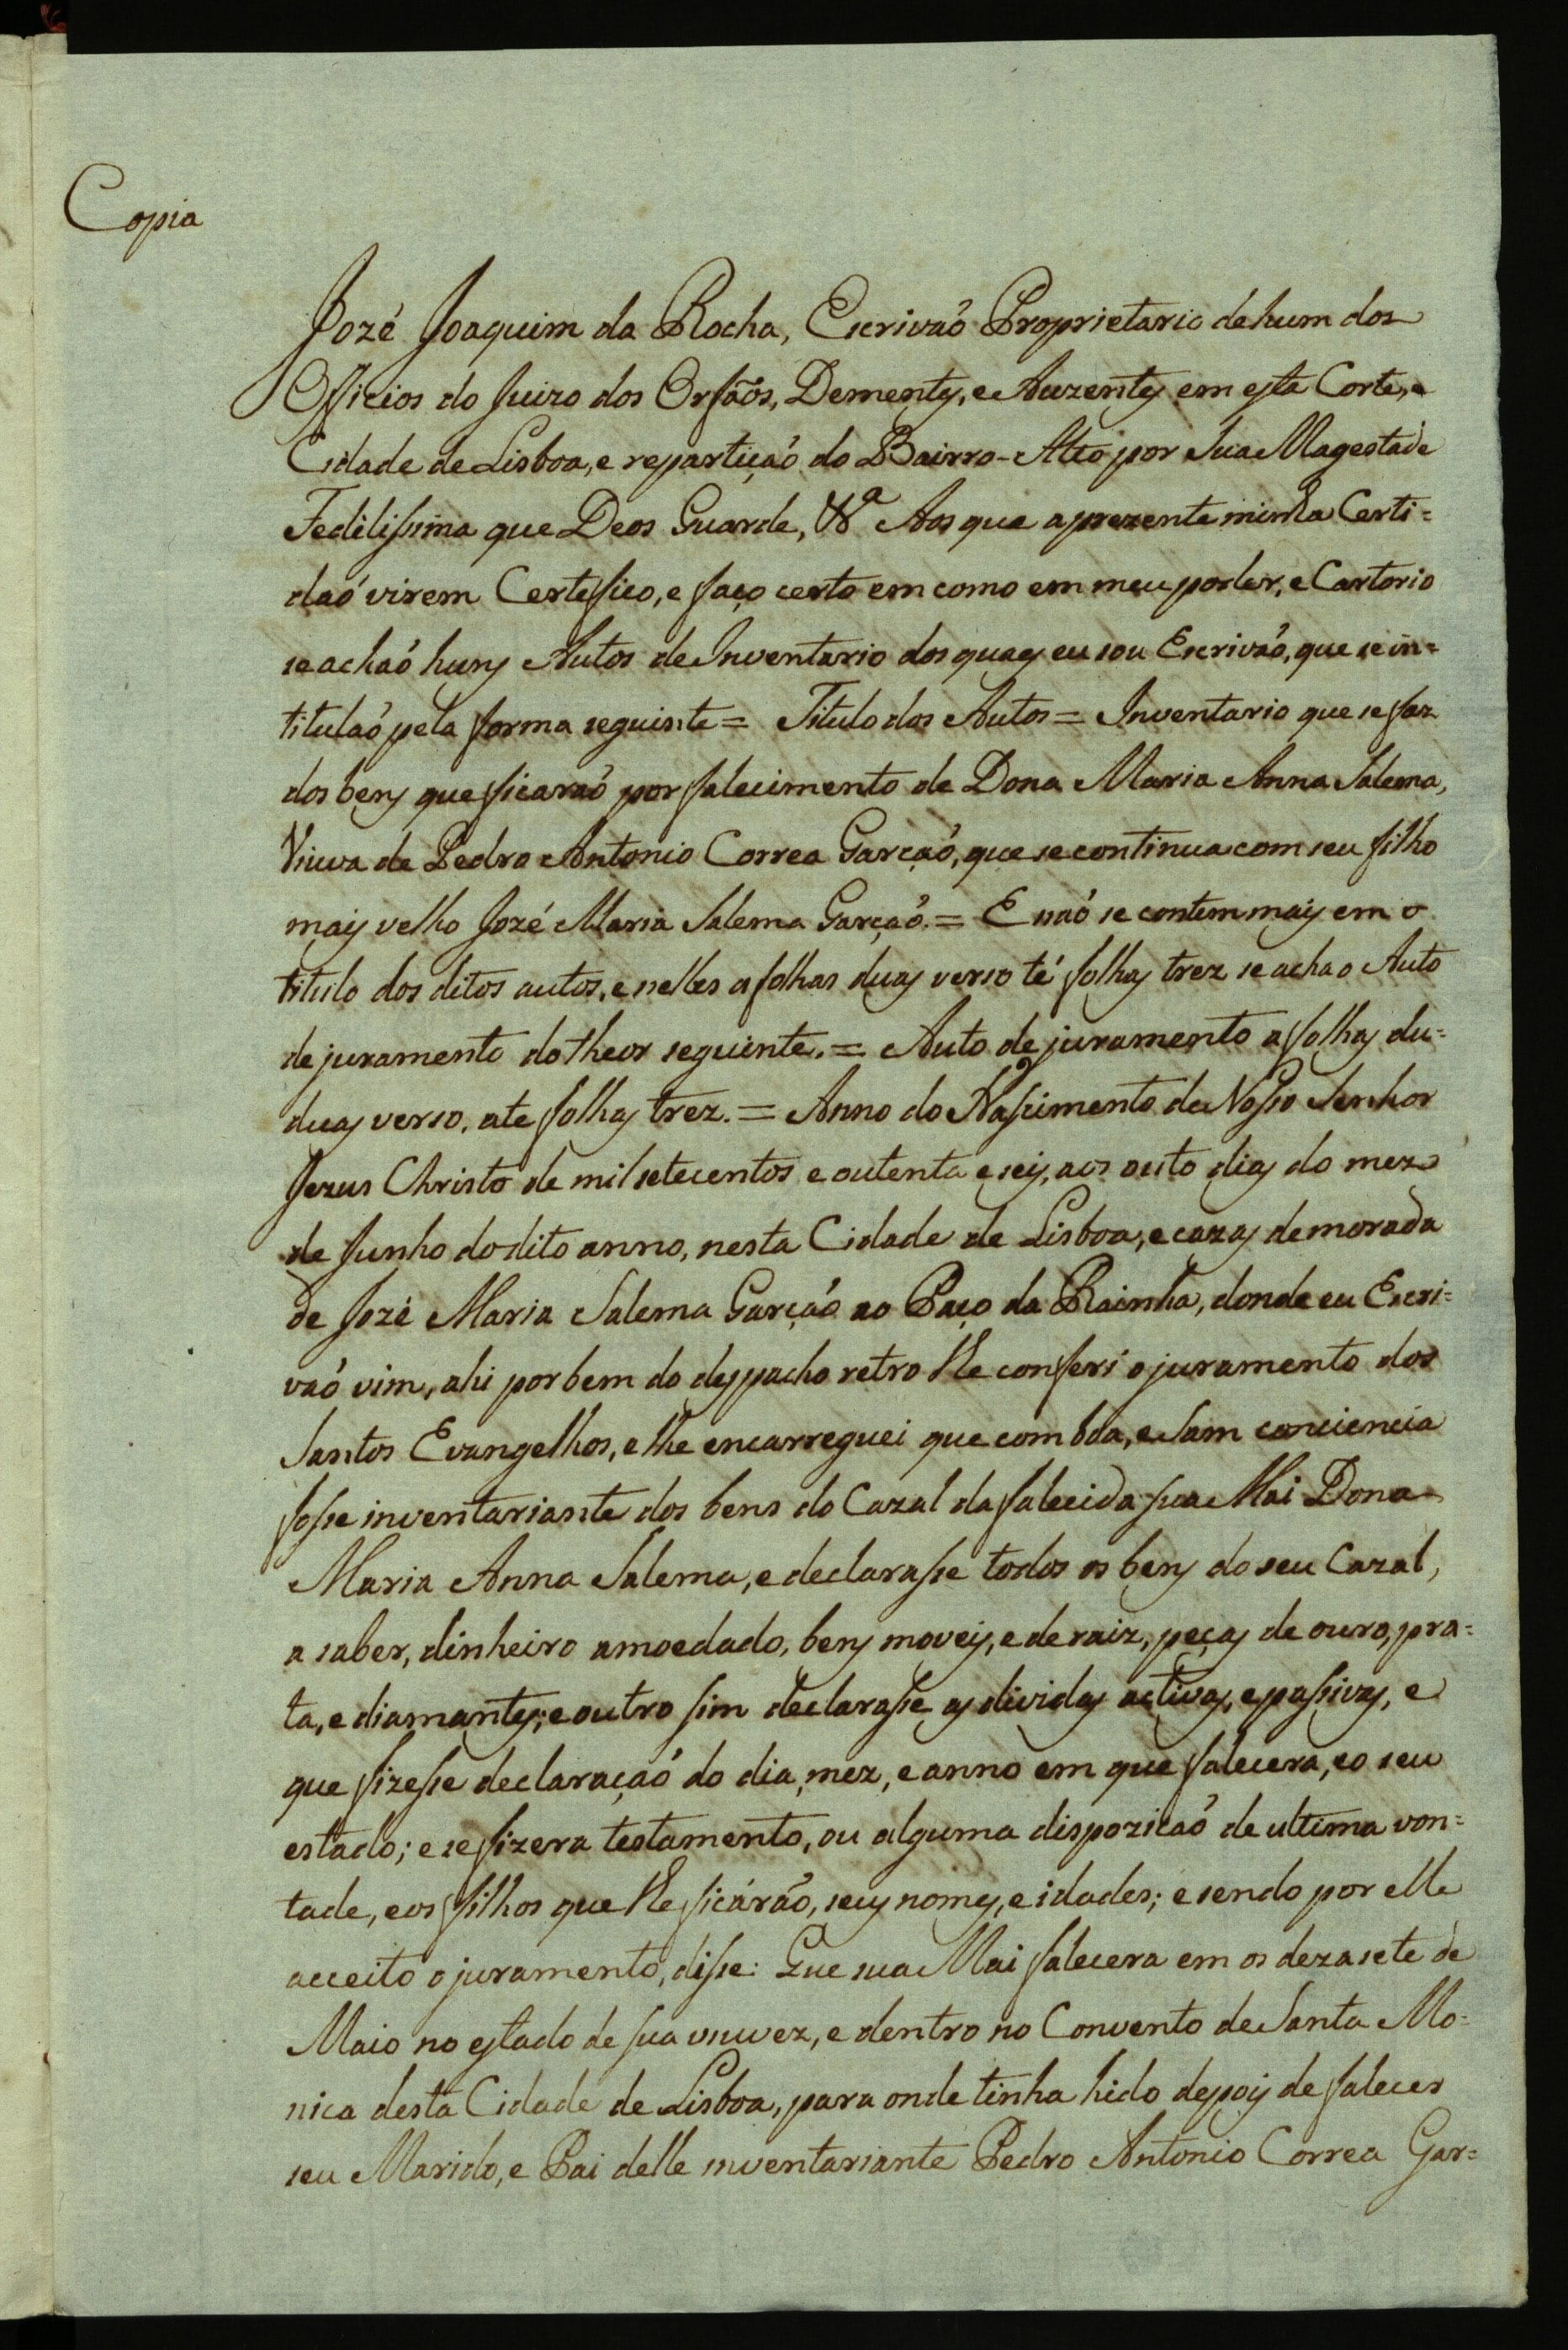 Copia
Jozé Joaquim da Rocha, Escrivaõ Proprietario de hum dos
Officios do Juizo dos Orfãos, Dementes, e Auzentes em esta Corte, e
Cidade de Lisboa, e repartiçaõ do Bairro-Alto por Sua Magestade
Fedilissima que Deos Guarde, &ª Aos que a prezente minha Certi=
daõ virem Certefico, e faço certo em como em meu poder, e Cartorio
se achaõ huns Autos de Inventario dos quaes eu sou Escrivaõ, que se in=
titulaõ pela forma seguinte = Titulo dos Autos = Inventario que se faz
dos bens que ficaraõ por falecimento de Dona Maria Anna Salema,
Viuva de Pedro Antonio Correa Garçaõ, que se continua com seu filho
mais velho Jozé Maria Salema Garçaõ. = E naõ se contem mais em o
titulo dos ditos autos, e nelles a folhas duas verso té folhas trez se acha o Auto
de juramento do theor seguinte. = Auto de juramento a folhas du=
duas verso, ate folhas trez. = Anno do Nascimento de Nosso Senhor
Jezus Christo de mil setecentos e outenta e seis, aos outo dias do mez
de Junho do dito anno, nesta Cidade de Lisboa, e cazas de morada
de Jozé Maria Salema Garçaõ ao Paço da Rainha, donde eu Escri=
vaõ vim, ahi por bem do despacho retro lhe conferi o juramento dos
Santos Evangelhos, e lhe encarreguei que com bôa, e sam conciencia
fosse inventariante dos bens do Cazal da falecida sua Mai Dona
Maria Anna Salema, e declarasse todos os bens do seu Cazal,
a saber, dinheiro amoedado, bens moveis, e de raiz, peças de ouro, pra=
ta, e diamantes; e outro sim declarasse as dividas activas, e passivas, e
que fizesse declaraçaõ do dia, mez, e anno em que falecera, eo seu
estado; e se fizera testamento, ou alguma dispozicaõ de ultima von=
tade, eos filhos que lhe ficárão, seus nomes, e idades; e sendo por elle
acceito o juramento, disse: Que sua Mai falecera em os dezasete de
Maio no estado de sua viuvez, e dentro no Convento de Santa Mo=
nica desta Cidade de Lisboa, para onde tinha hido depois de falecer
seu Marido, e Pai delle inventariante Pedro Antonio Correa Gar=